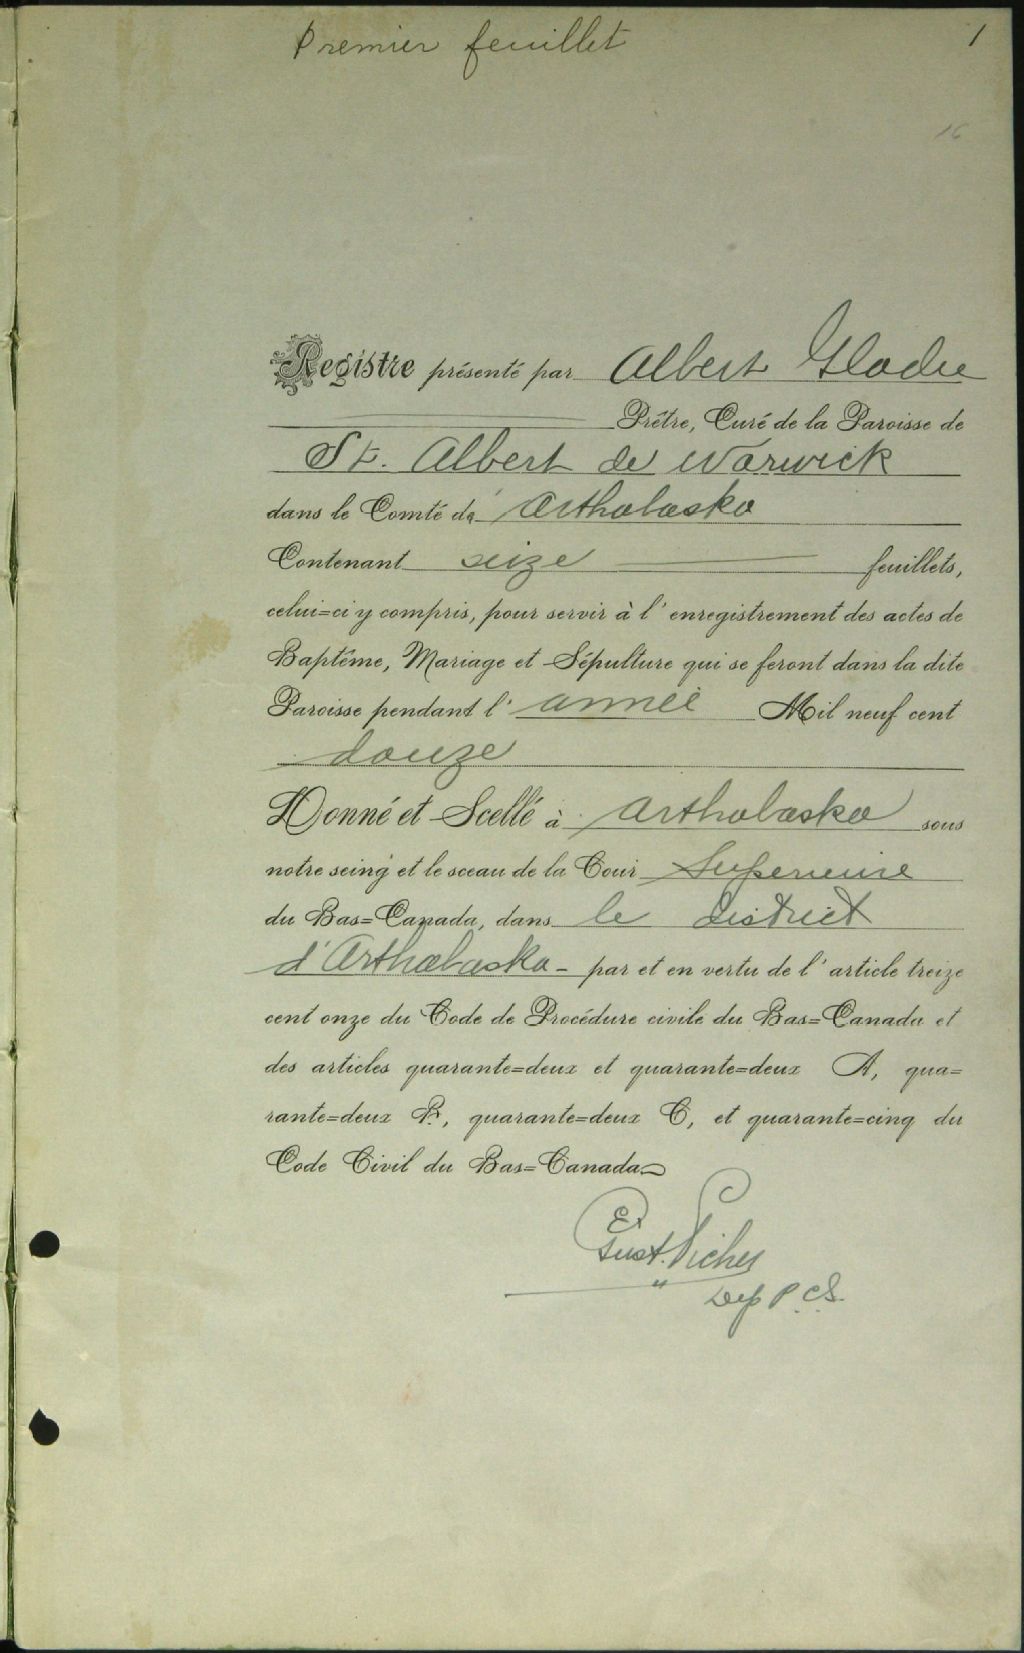 Premier feuillet
1
16
Registre présenté par Albert Gladu
Prêtre, Curé de la Paroisse de
St. Albert de Warwick
dans le Comté d' Arthabaska
Contenant seize feuillets,
celui=ci y compris, pour servir à l'enregistrement des actes de
Baptême, Mariage et Sépulture qui se feront dans la dite
Paroisse pendant l' année Mil neuf cent
douze
Donné et Scellé à Arthabaska sous
notre seing et le sceau de la Cour Superieure
du Bas=Canada, dans le district
d'Arthabaska - par et en vertu de l'article treize
cent onze du Code de Procédure civile du Bas=Canada et
des articles quarante=deux et quarante=deux A, qua=
rante=deux B, quarante=deux C, et quarante=cinq du
Code Civil du Bas=Canada
Dep P.C.S.